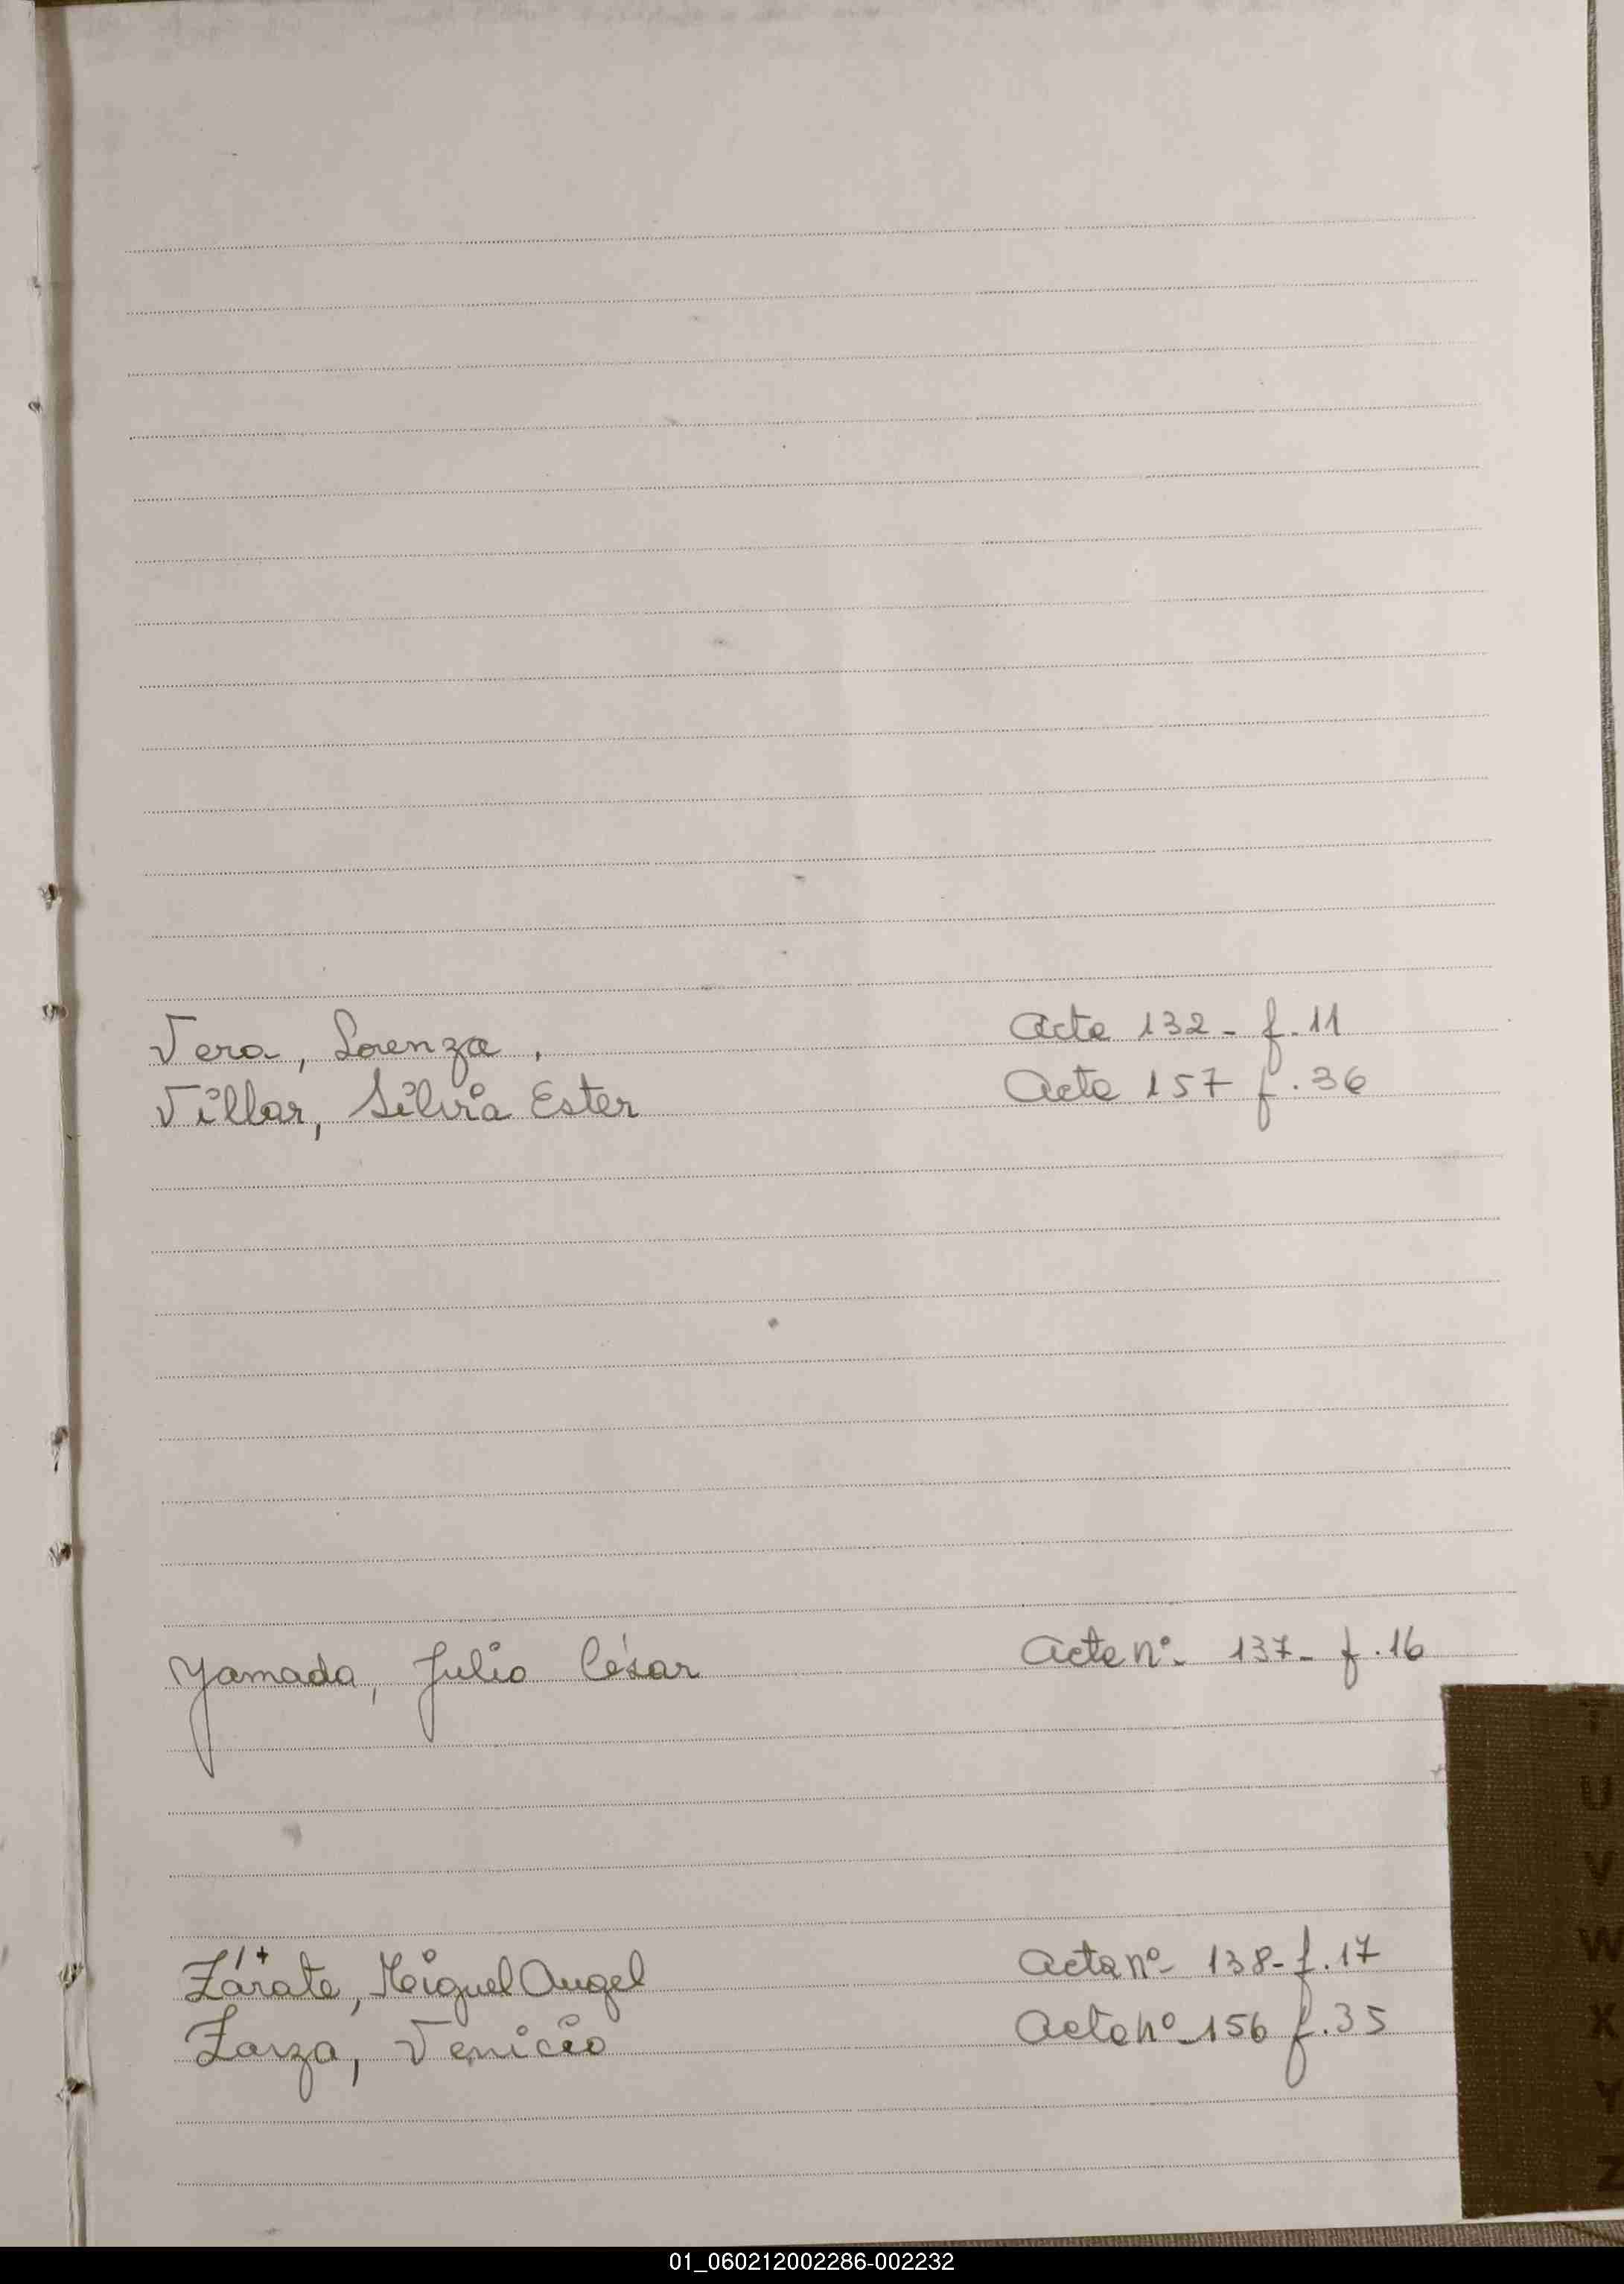 Vera, Lorenza. Acta 132- f. 11
Villar, Silvia Ester Acta 157 f. 36
Yamada, Julio César Acta nº- 137- f. 16
Zárate, Miguel Angel Acta nº- 138- f. 17
Zarza, Venicio Acta nº- 156 f. 35
U
V
W
X
Y
Z
01_060212002286-002232